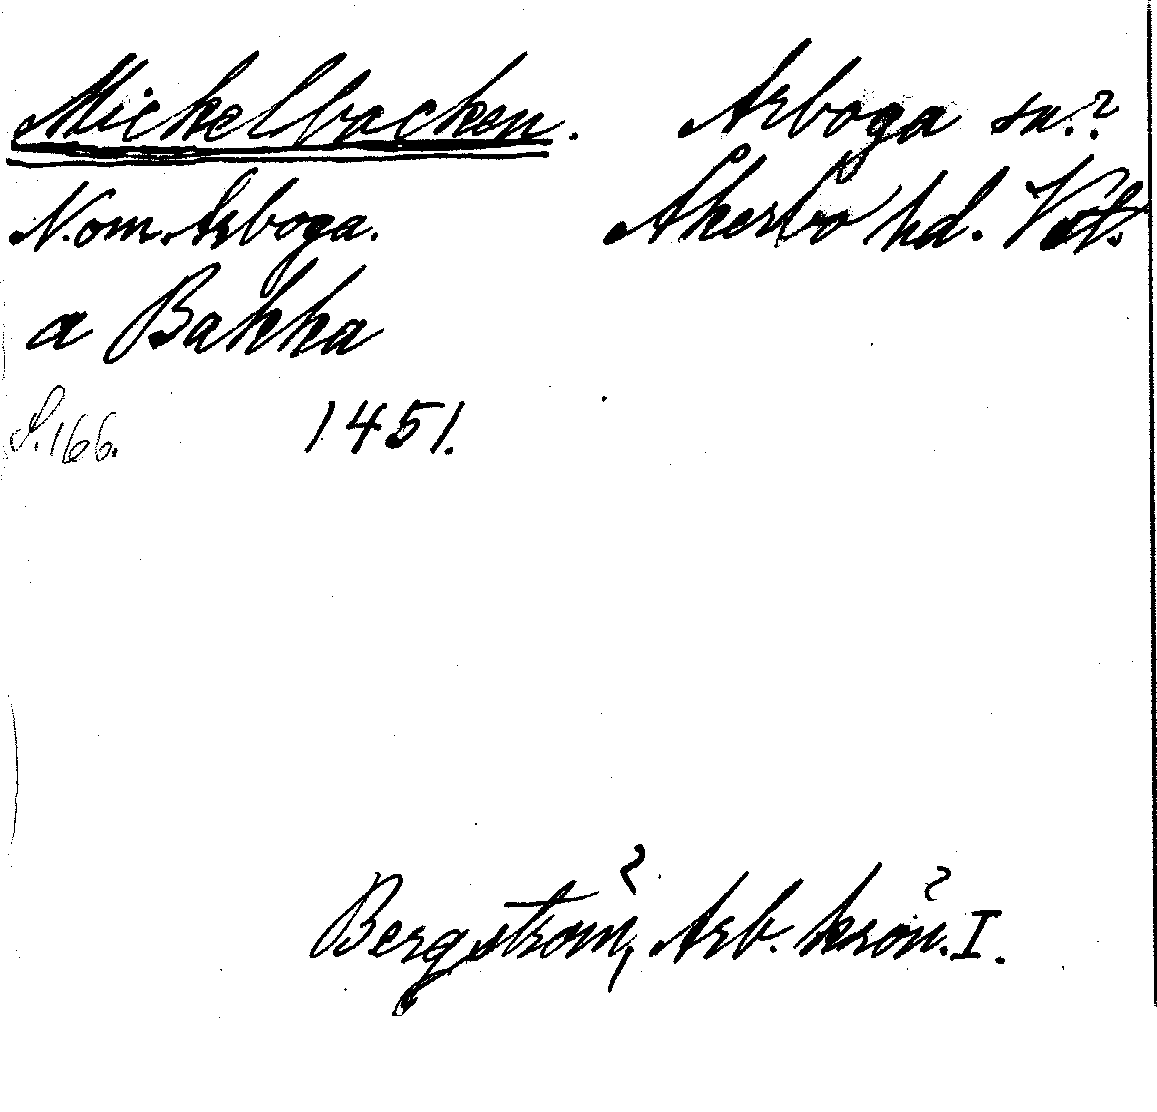 Mickelbacken. Arboga sn.?
N.om. Arboga. Åkerbo hd. Vstm.
a Bakka
S.166. 1451.
Bergström, Arb. krön. I.